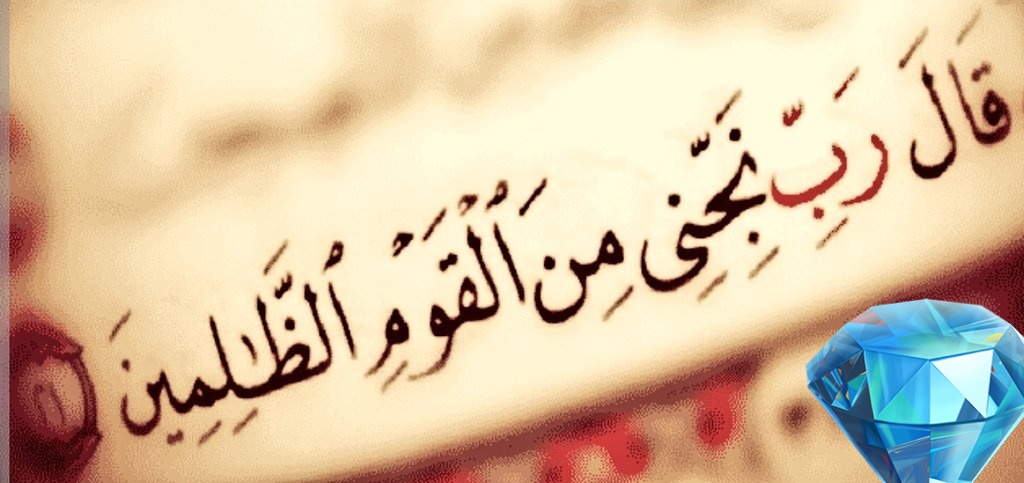 قَالَ رَبِّ نَجِّنِى مِنَ ٱلْقَوْمِ ٱلظَّٰلِمِينَ